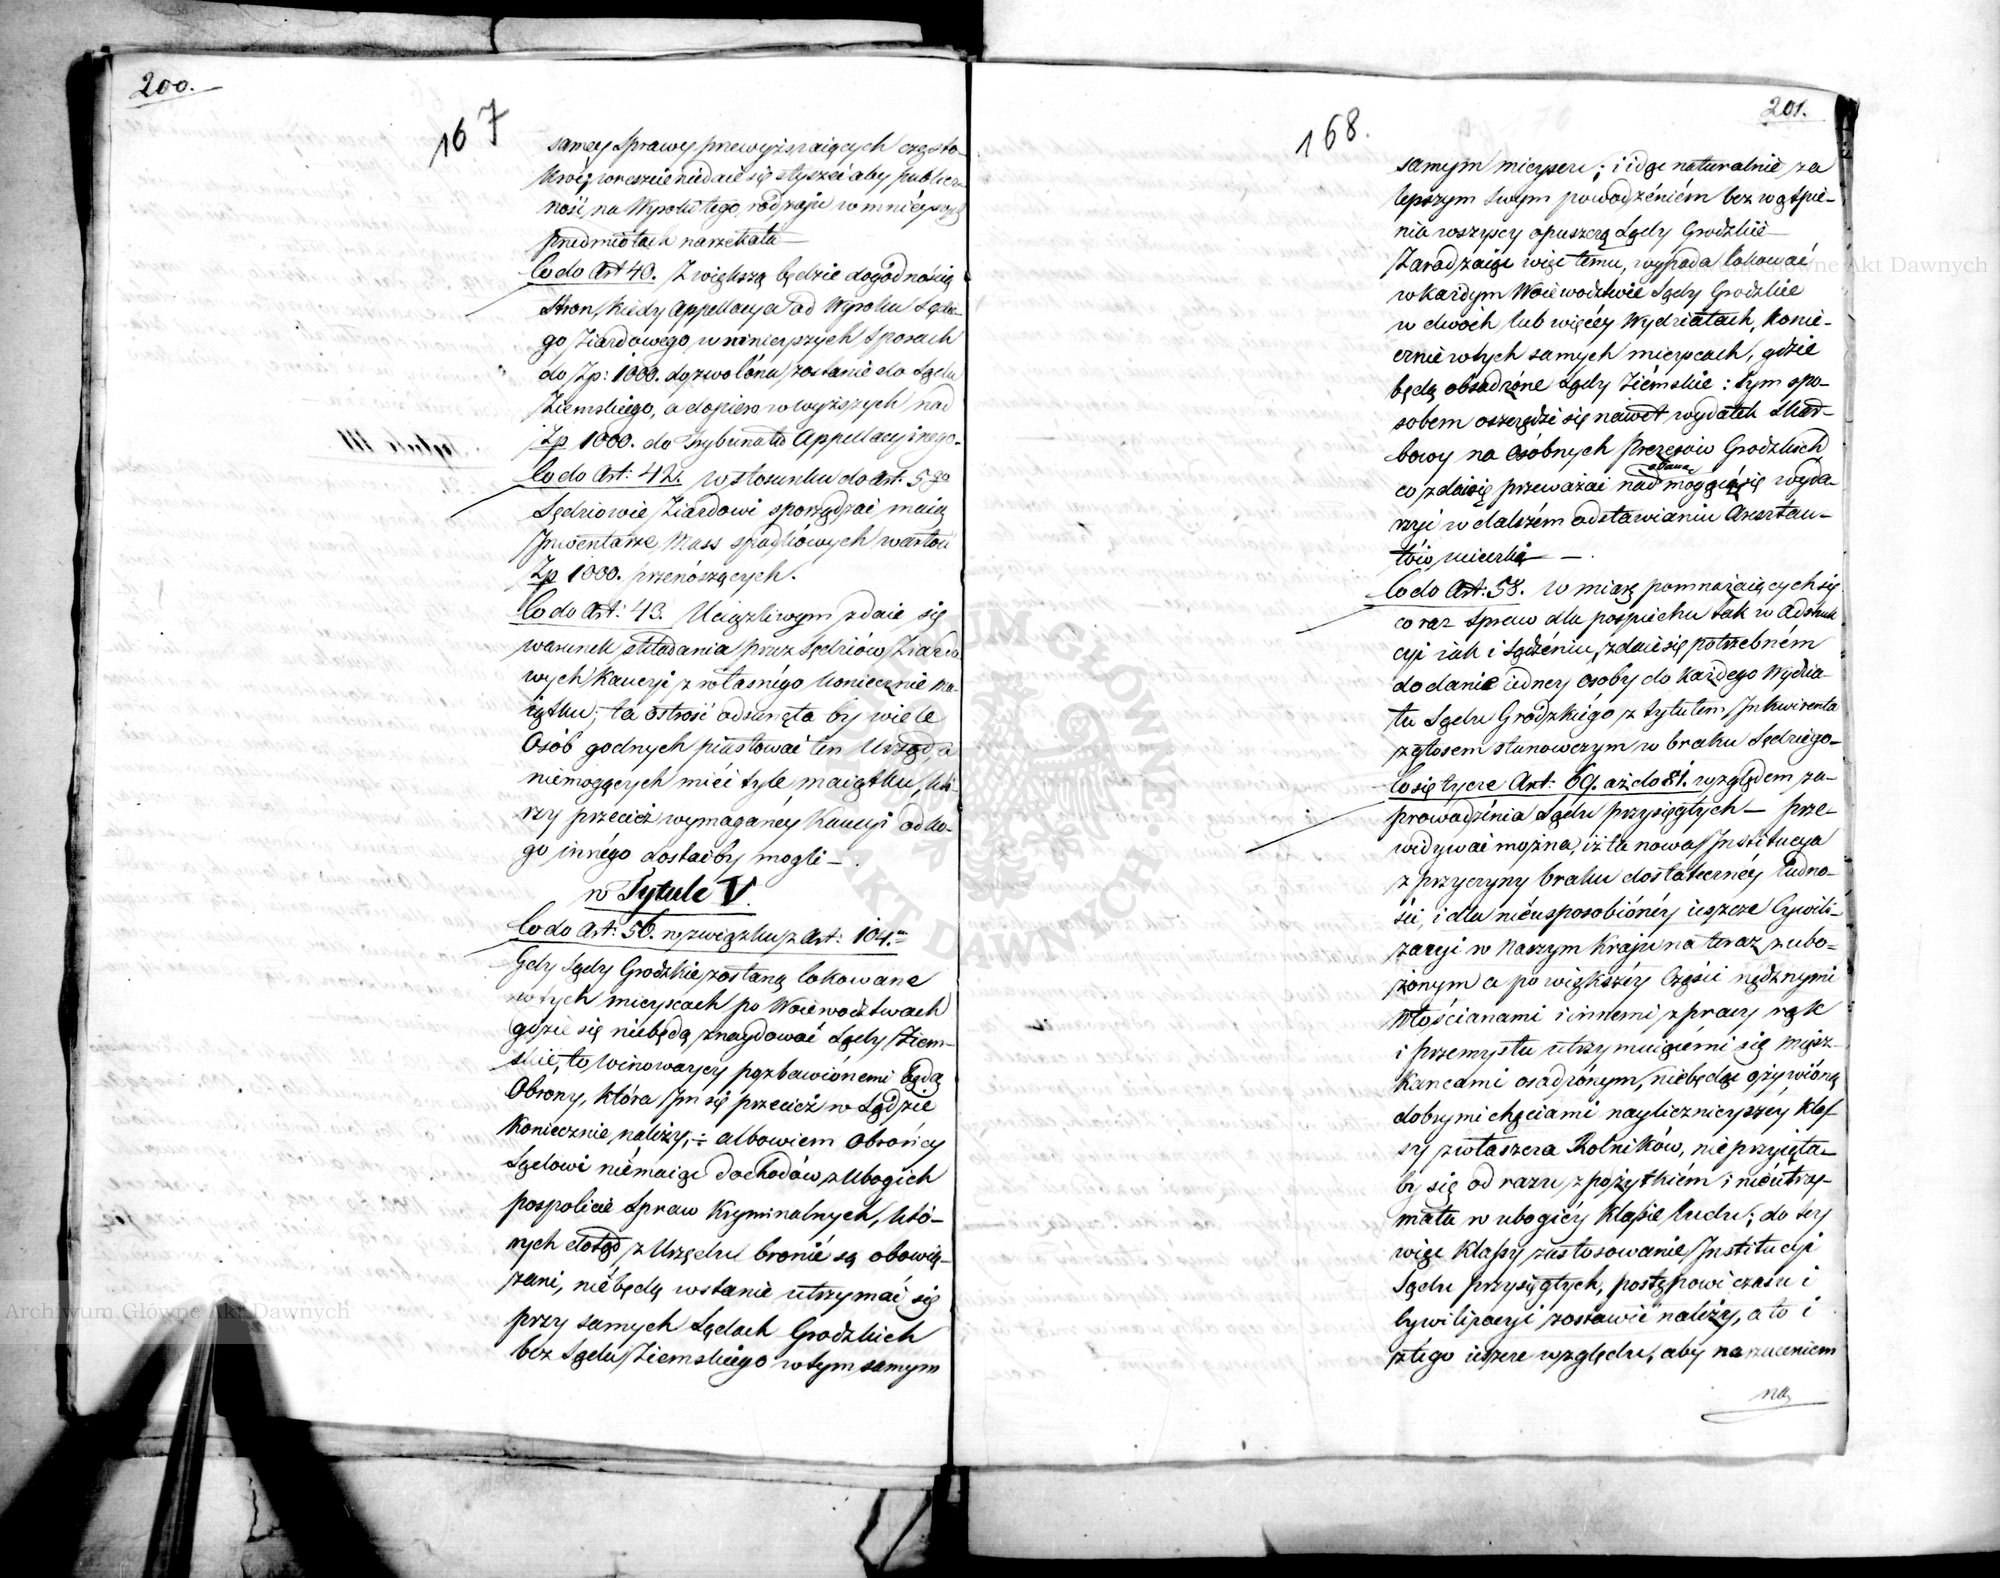 200.
167
samey Sprawy przewyższaiących często-
kroć, wreszcie niedaie się słyszéć aby publicz-
ność na Wyroki tego rodzaju w mnieyszych
przedmiotach narzekała —
Co do Art 40. Z większą będzie dogodnością
Stron, kiedy Appellacya od Wyroku Sędzie-
go Ziazdowego w mnieyszych Sporach
do Zp: 1000. dozwolóna zostanie do Sądu
Ziemskiego, a dopiero w wyższych nad
Zp 1000. do Trybunału Appellacyinego.
Co do Art: 42. w stosunku do Art: 5go
Sędziowie Ziazdowi sporządzać maią
Inwentarze Mass spadkówych wartość
Zp 1000. przenószących.
Co do Art: 43. Uciążliwym zdaie się
warunek składania przez Sędziów Ziazdo
wych Kaucyi z własnégo koniecznie ma-
iątku; ta ostrość odsunęła by wiele
Osób godnych piastować ten Urząd, a
niemogących miéć tyle maiątku, któ-
rzy przecież wymaganéy Kaucyi od ko-
go innégo dostać by mogli — .
w Tytule V.
Co do Art: 56. w związku z Art: 104.
Gdy Sądy Grodzkie zostaną lokowane
w tych mieyscach po Woiewództwach
gdzie się niebędą znaydować Sądy Ziem-
skie, to Winowaycy pozbawiónemi będą
Obrony, która Im się przecież w Sądzie
koniecznie należy, ÷ albowiem Obrońcy
Sądowi niémaiąc dochodów z Ubogich
pospolicie Spraw Kryminalnych, któ-
rych dotąd z Urzędu bronić są obowią-
zani, niebędą wstanie utrzymać się
przy samych Sądach Grodzkich
bez Sądu Ziemskiego w tym samym
201.
168.
samym mieyscu; i idąc naturalnie za
lepszym swym powodzéniém bez wątpie-
nia wszyscy opuszczą Sądy Grodzkie —
Zaradzaiąc więc temu, wypada lokować
w każdym Woiewództwie Sądy Grodzkie
w dwóch lub więcéy Wydziałach, konie-
cznie w tych samych mieyscach, gdzie
będą obsadzóne Sądy Ziémskie: tym spo-
sobem oszczędzi się nawet wydatek Skar-
bowy na osóbnych Prezesów Grodzkich
co zdaie się przeważać nad mogącą się wyda-
obawą
rzyć w dalszém odstawianiu Aresztan-
tów ucieczką — .
Co do Art: 58. W miarę pomnażaiących się
coraz Spraw dla pospiechu tak w
cyi iak i Sądzéniu, zdaie się potrzebném
dodanie iedney Osoby do każdego Wydzia-
łu Sądu Grodzkiégo z tytułem Inkwirenta
z głosem stanowczym w braku Sędziego —
Co się tycze Art: 69. aż do 81. względem za-
prowadzénia Sądu przysięgłych — prze-
widywać można, iż ta nowa Instytucya
z przyczyny braku dostatecznéy ludno-
ści, i dla niéusposobiónéy ieszcze Cywili-
zacyi w Naszym Kraju na teraz zubo-
żonym a po większéy Części nędznymi
włościanami i innemi z pracy rąk
i przemysłu utrzymuiącémi się miesz-
kancami osadzónym, niebędąc ożywióną
dobrymi chęciami nayliczniejszéy Klas-
sy zwłaszcza Rolników, nie przyięła-
by się od razu z pożytkiém i niéutrzy-
mała w ubogiéy Klassie ludu; do téy
więc Klassy zastosowanie Instytucyi
Sądu przysięgłych, postępowi czasu i
Cywilizacyi zostawić należy, a to i
z tégo ieszcze względu, aby narzuceniem
na
Archiwum Główne Akt Dawnych
Archiwum Główne Akt Dawnych
ARCHIWUM GŁÓWNE AKT DAWNYCH